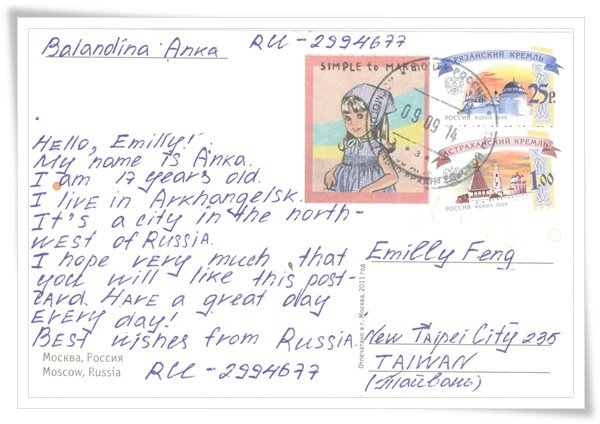 Balandina Anka RU-2994677
Hello, Emilly!
My name is Anka.
I am 17 years old.
I live in Arkhangelsk.
It's a city in the north-
west of Russia.
I hope very much that
you will like this post-
card. Have a great day
every day!
Best wishes from Russia.
RU-2994677
Москва, Россия
Moscow, Russia
SIMPLE to MAK
09 09 14
РЯЗАНСКИЙ КРЕМЛЬ
25р.
РОССИЯ RUSSIA·2009
АСТРАХАНСКИЙ КРЕМЛЬ
1.00
РОССИЯ RUSSIA·2009
Отпечатано в г. Москва, 2011 год
Emilly Feng
New Taipei City 235
TAIWAN
(Тайвань)